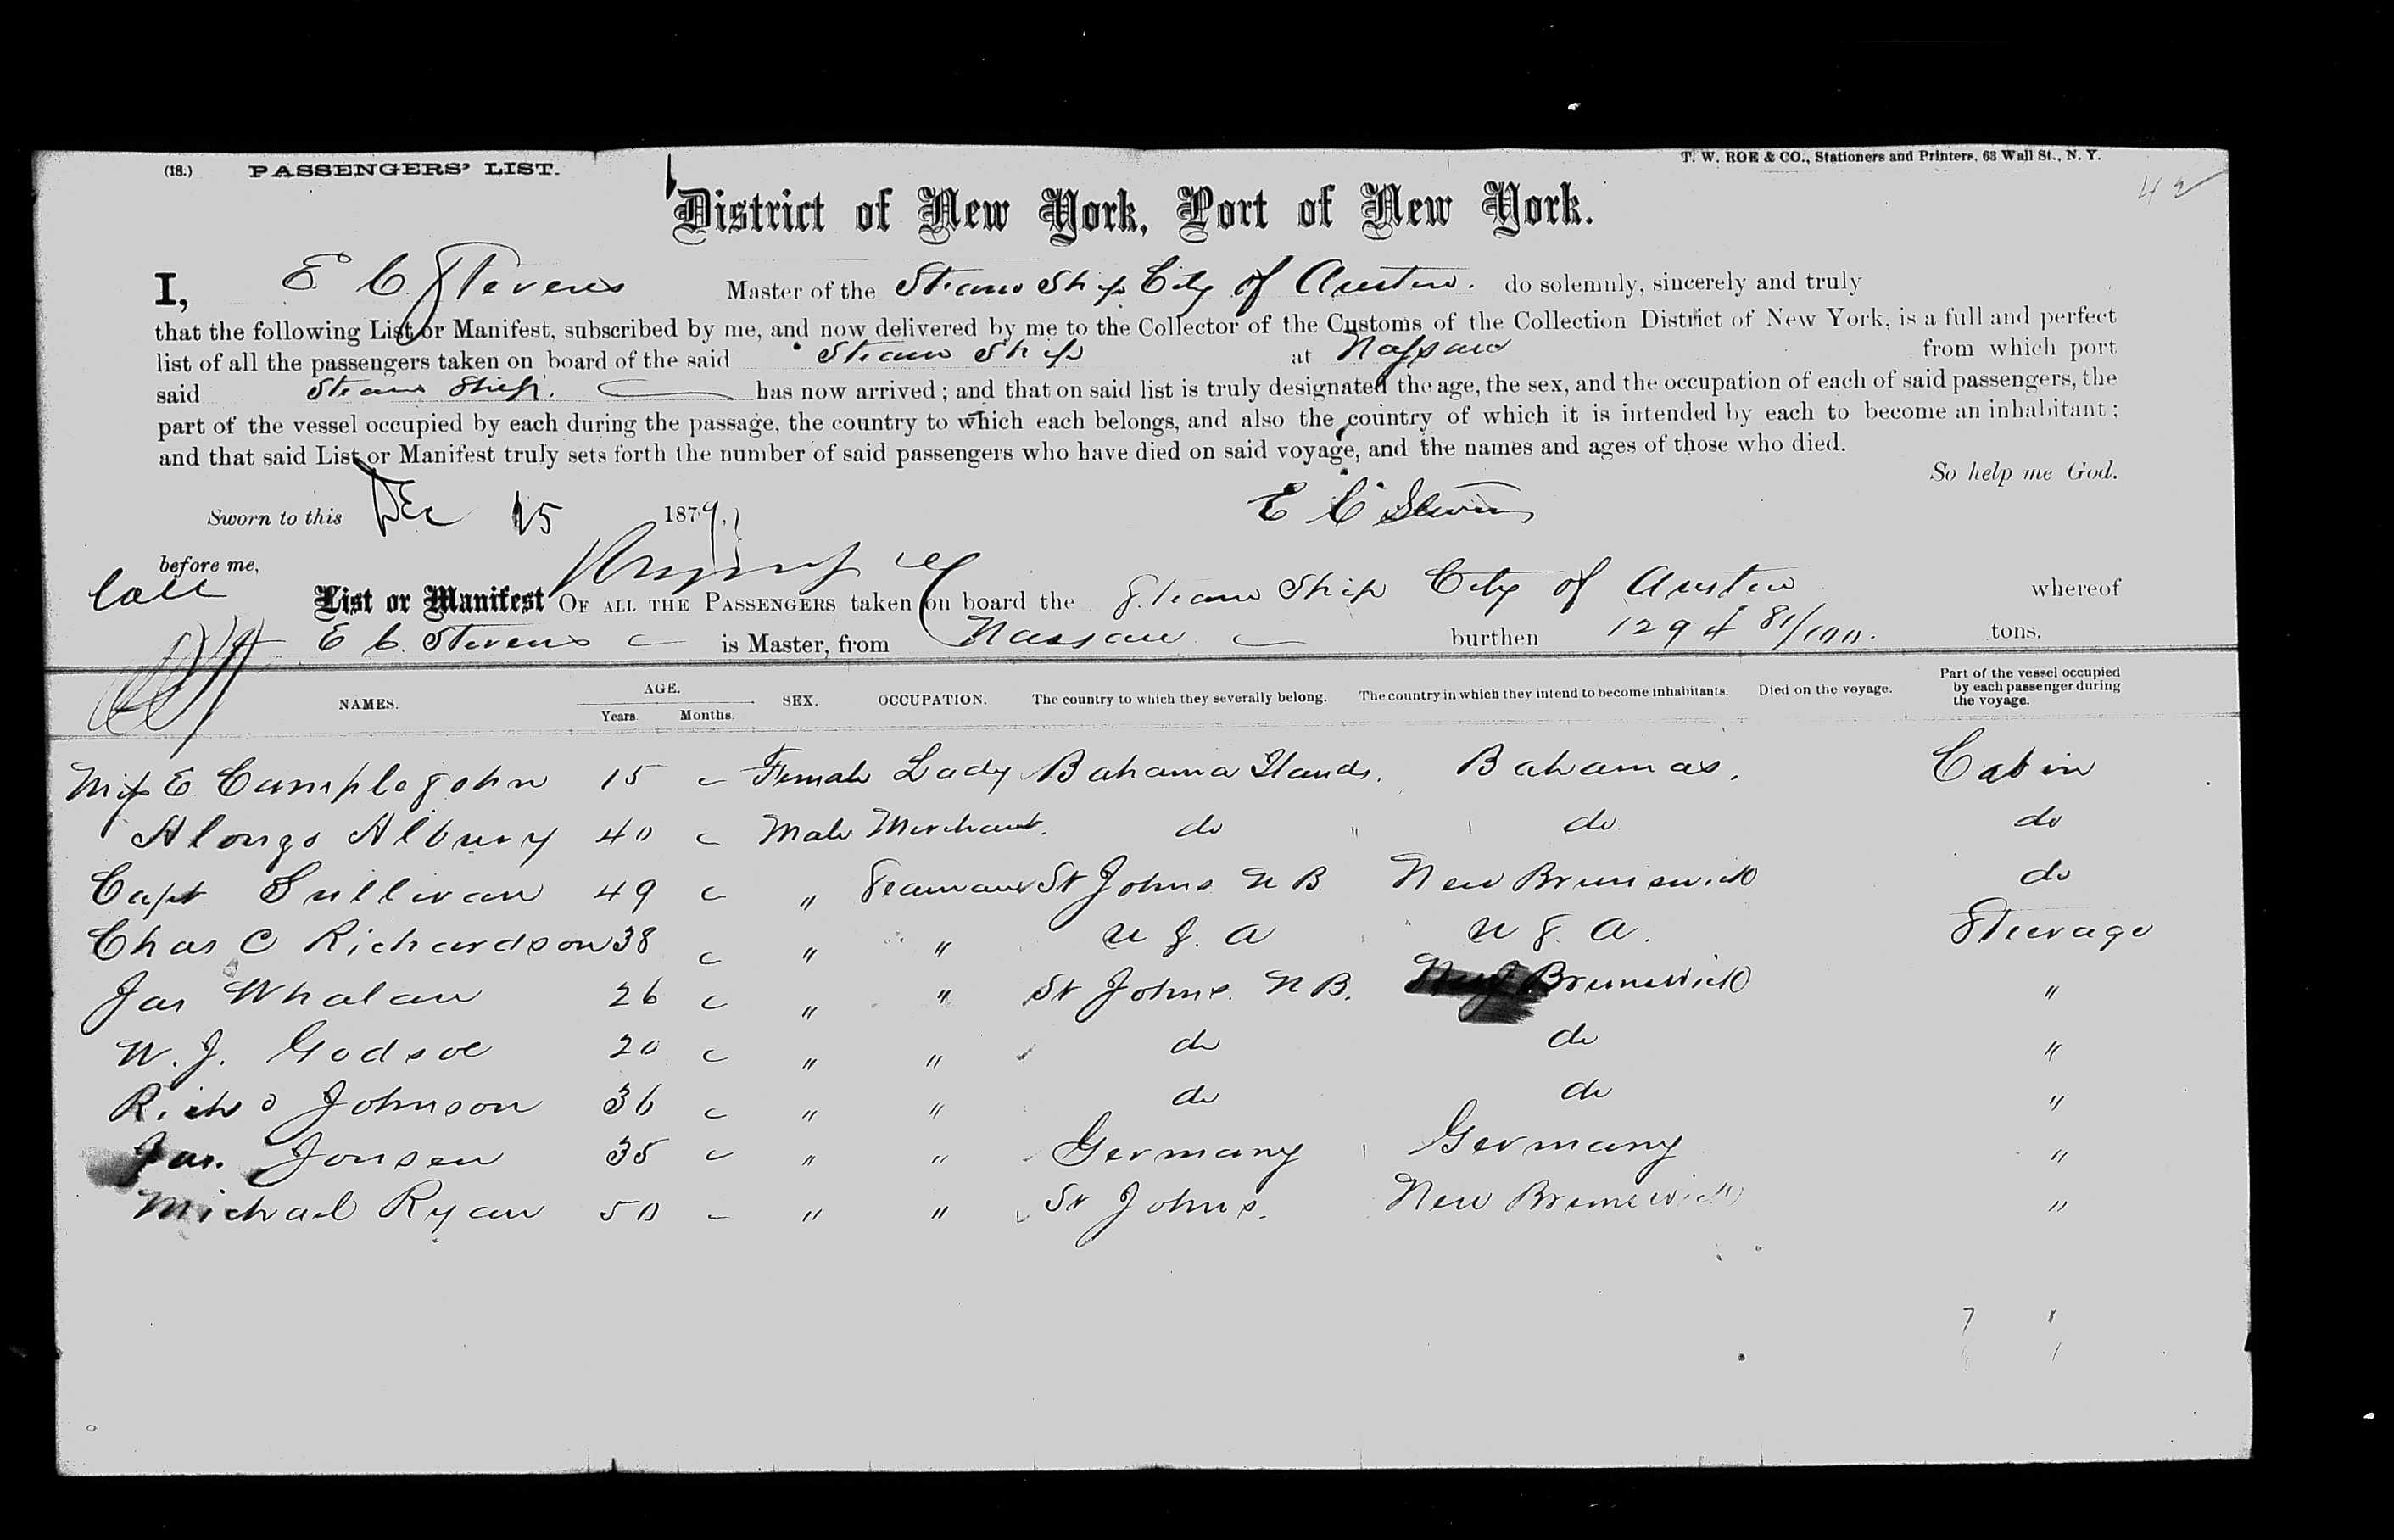 (18.) PASSENGERS' LIST. T. W. ROE & CO., Stationers and Printers, 63 Wall St., N. Y.
42
District of New York, Port of New York.
I, E. C. Stevens Master of the Steam Ship City of Austin. do solemnly, sincerely and truly
that the following List or Manifest, subscribed by me, and now delivered by me to the Collector of the Customs of the Collection District of New York, is a full and perfect
list of all the passengers taken on board of the said Steam Ship at Nassau from which port
said Steam Ship. has now arrived; and that on said list is truly designated the age, the sex, and the occupation of each of said passengers, the
part of the vessel occupied by each during the passage, the country to which each belongs, and also the country of which it is intended by each to become an inhabitant;
and that said List or Manifest truly sets forth the number of said passengers who have died on said voyage, and the names and ages of those who died.
So help me God.
Sworn to this Dec 15 1879. E C Stevens
before me,
List or Manifest OF ALL THE PASSENGERS taken on board the Steam Ship City of Austin whereof
E C. Stevens is Master, from Nassau burthen 1294 81/100. tons.
NAMES. AGE. Years. Months. SEX. OCCUPATION. The country to which they severally belong. The country in which they intend to become inhabitants. Died on the voyage. Part of the vessel occupied by each passenger during the voyage.
Miss E Camplejohn 15 Female Lady Bahama Ilands. Bahamas. Cabin
Alonzo Albury 40 Male Merchant. do " do. do
Capt Sullivan 49 " Seaman St Johns N B New Brunswick do
Chas C Richardson 38 " " U S. A U S. A. Steerage
Jas Whalan 26 " " St Johns. N B. New Brunswick "
W. J. Godsoe 20 " " do do "
Richd Johnson 36 " " do do "
Jas. Jonsen 35 " " Germany Germany "
Michael Ryan 50 " " St Johns. New Brunswick "
7 "